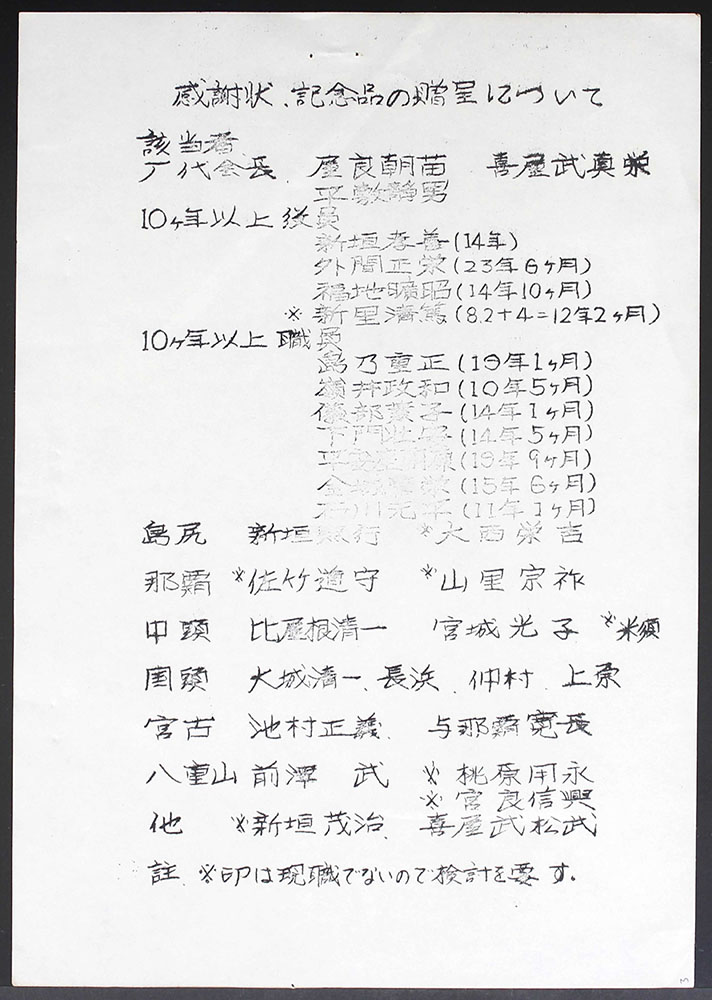 感謝状、記念品の贈呈について
該当者
丁代会長 屋良朝苗 喜屋武真栄
平敷静男
10ヶ年以上役員
新垣孝善(14年)
外間正栄(23年6ヶ月)
福地曠昭(14年10ヶ月)
※新里清篤(8.2+4=12年2ヶ月)
10ヶ年以上職員
島乃重正(19年1ヶ月)
嶺井政和(10年5ヶ月)
子(14年1ヶ月)
下門(14年5ヶ月)
平(19年9ヶ月)
金城 栄(15年6ヶ月)
石川元平(11年1ヶ月)
島尻 新垣 行 ※大西栄吉
那覇 ※佐竹道守 ※山里宗祚
中頭 比屋根清一 宮城光子 ※米須
国頭 大城清一、長浜、仲村 上原
宮古 池村正義 与那覇寛長
八重山 前澤 武 ※桃原用永
※宮良信興
他 ※新垣茂治 喜屋武松武
註 ※印は現職でないので検討を要す.